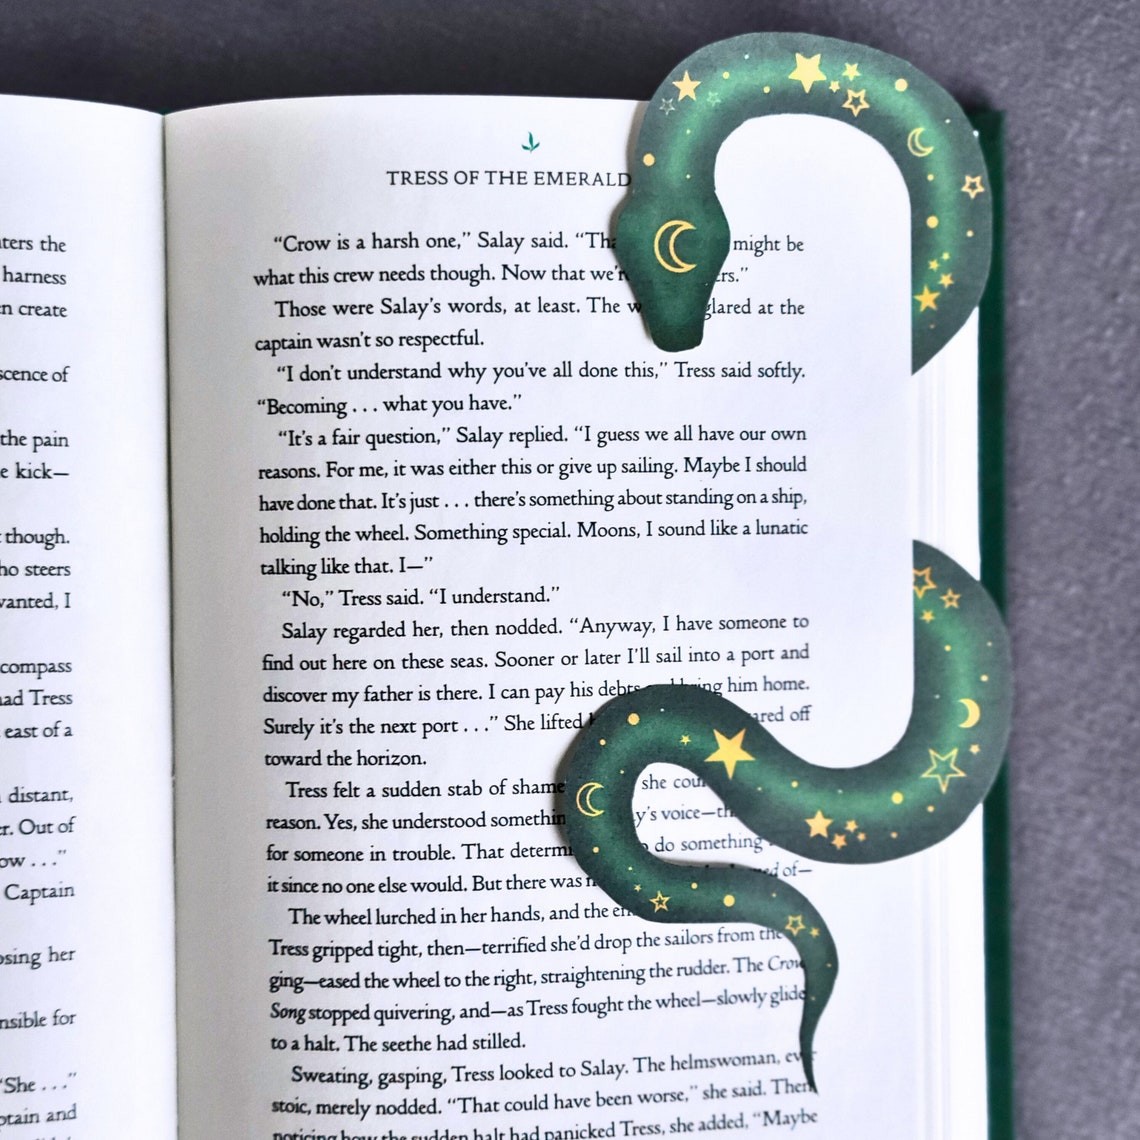 aters the
harness
create
scence of
the pain
kick—
though.
who steers
wanted, I
compass
had Tress
east of a
distant,
Out of
. . .”
Captain
her
for
“She . . .”
and
TRESS OF THE EMERALD
“Crow is a harsh one,” Salay said. might be
what this crew needs though. Now that we’r
Those were Salay’s words, at least. The glared at the
captain wasn’t so respectful.
“I don’t understand why you’ve all done this,” Tress said softly.
“Becoming . . . what you have.”
“It’s a fair question,” Salay replied. “I guess we all have our own
reasons. For me, it was either this or give up sailing. Maybe I should
have done that. It’s just . . . there’s something about standing on a ship,
holding the wheel. Something special. Moons, I sound like a lunatic
talking like that. I—”
“No,” Tress said. “I understand.”
Salay regarded her, then nodded. “Anyway, I have someone to
find out here on these seas. Sooner or later I’ll sail into a port and
discover my father is there. I can pay his debts him home.
Surely it’s the next port . . .” She lifted off
toward the horizon.
Tress felt a sudden stab of shame she
reason. Yes, she understood voice—
for someone in trouble. That do something
it since no one else would. But there was of—
The wheel lurched in her hands, and the
Tress gripped tight, then—terrified she’d drop the sailors from the
ging—eased the wheel to the right, straightening the rudder. The Crow
Song stopped quivering, and—as Tress fought the wheel—slowly glide
to a halt. The seethe had stilled.
Sweating, gasping, Tress looked to Salay. The helmswoman,
stoic, merely nodded. “That could have been worse,” she said. Then
noticing how the sudden halt had panicked Tress, she added, “Maybe